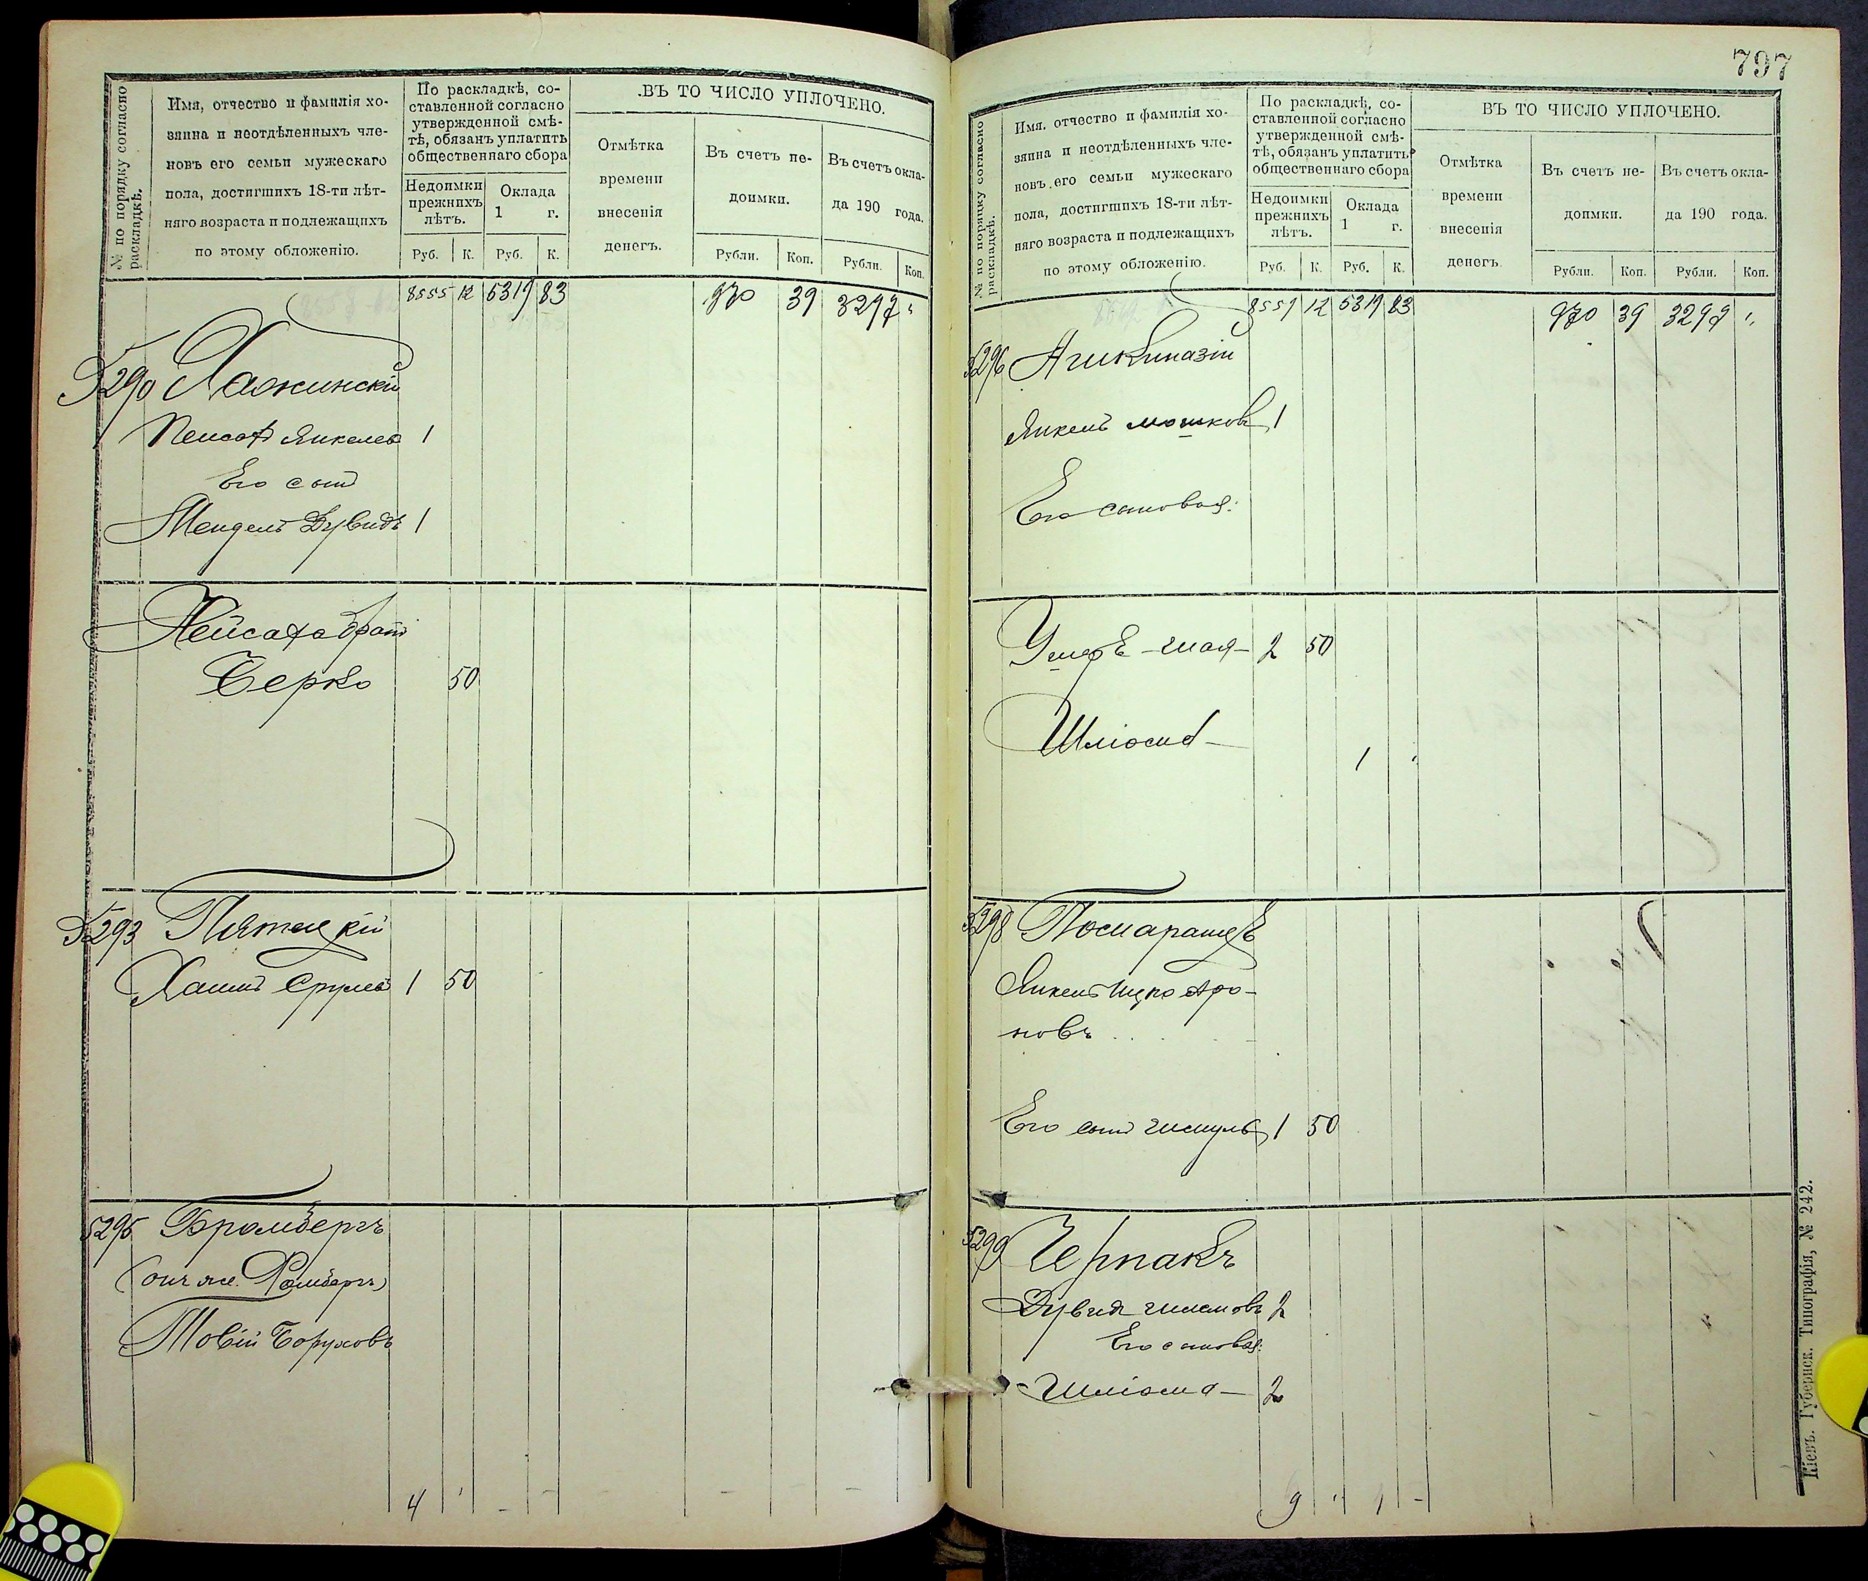 № по порядку согласно раскладкѣ.
Имя, отчество и фамилія хо-
зяина и неотдѣленныхъ чле-
новъ его семьи мужескаго
пола, достигшихъ 18-ти лѣт-
няго возраста и подлежащихъ
по этому обложенію.
По раскладкѣ, со-
ставленной согласно
утвержденной смѣ-
тѣ, обязанъ уплатить
общественнаго сбора
Недоимки
прежнихъ
лѣтъ.
Оклада
1 г.
Руб. К. Руб. К.
ВЪ ТО ЧИСЛО УПЛОЧЕНО.
Отмѣтка
времени
внесенія
денегъ.
Въ счетъ не-
доимки.
Въ счетъ окла-
да 190 года.
Рубли. Коп. Рубли. Коп.
8555 12 5319 83 970 39 3297 "
5290
Пейсах Янкелев 1
Его сын
Мендель Дувидъ 1
Пейсаха брат
Берко 50
5293 Пятецкій
Хаим Срулев 1 50
5295 Бромбергъ
(онъ же Ромбергъ)
Товій Боруховъ
4
797
№ по порядку согласно раскладкѣ.
Имя, отчество и фамилія хо-
зяина и неотдѣленныхъ чле-
новъ его семьи мужескаго
пола, достигшихъ 18-ти лѣт-
няго возраста и подлежащихъ
по этому обложенію.
По раскладкѣ, со-
ставленной согласно
утвержденной смѣ-
тѣ, обязанъ уплатить
общественнаго сбора
Недоимки
прежнихъ
лѣтъ.
Оклада
1 г.
Руб. К. Руб. К.
ВЪ ТО ЧИСЛО УПЛОЧЕНО.
Отмѣтка
времени
внесенія
денегъ.
Въ счетъ не-
доимки.
Въ счетъ окла-
да 190 года.
Рубли. Коп. Рубли. Коп.
8559 12 5319 83 970 39 3297 "
5296
Янкель Мошков 1
Его сыновья:
2 50
Шліома
1
5298
Янкель Ицко Аро-
новъ
Его сын Шмуль 1 50
5299 Черпакъ
Дувид 2
Его сыновья:
Шліома 2
9 1 -
Кіевъ. Губернск. Типографія, № 242.